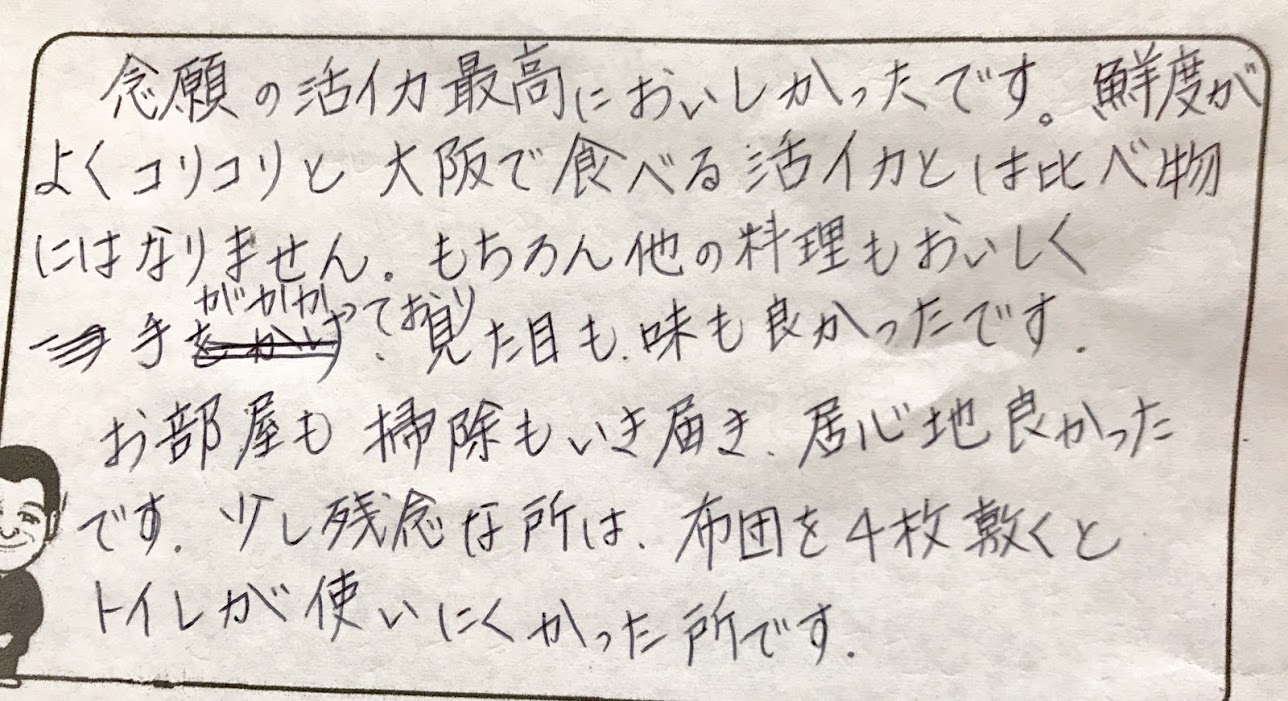 念願の活イカ最高においしかったです。鮮度が
よくコリコリと大阪で食べる活イカとは比べ物
にはなりません。もちろん他の料理もおいしく
手がかかっており、見た目も、味も良かったです.
お部屋も掃除もいき届き、居心地良かった
です. 少し残念な所は、布団を4枚敷くと
トイレが使いにくかった所です.